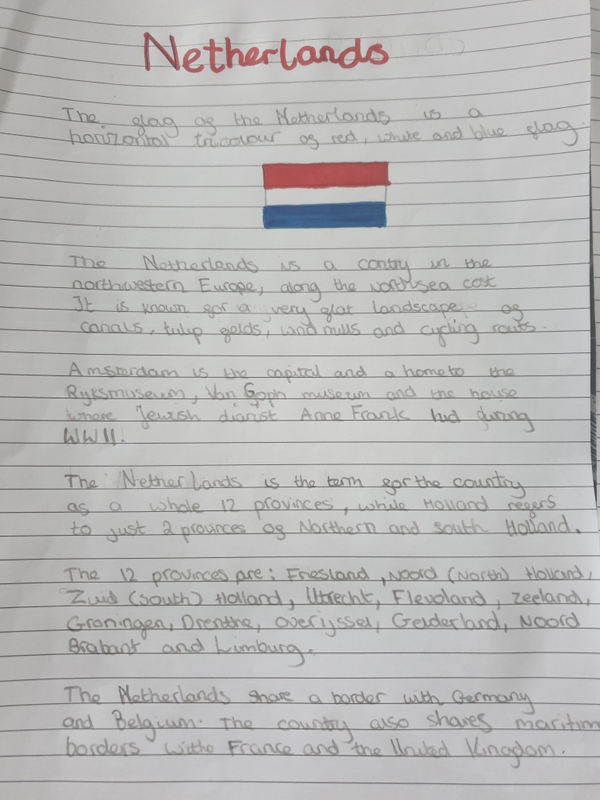 Netherlands
The glag og the Netherlands is a
horizontal tricolour og red, white and blue glag.
The Netherlands is a contry in the
northwestern Europe, along the north sea cost
It is known gor a very glat landscape og
canals, tulip gelds, wind mills and cycling routs.
Amsterdam is the capital and a home to the
Ryksmuseum, Van Goph museum and the house
where Jewish diarist Anne Frank hid during
WWII.
The Netherlands is the term gor the country
as a whole 12 provinces, while Holland regers
to just 2 provinces og Northern and south Holland.
The 12 provinces are: Friesland, Noord (North) Holland,
Zuid (South) Holland, Utrecht, Flevoland, Zeeland,
Groningen, Drenthe, Overijssel, Gelderland, Noord
Brabant and Limburg.
The Netherlands share a border with Germany
and Belgium. The country also shares maritim
borders withe France and the United Kingdom.